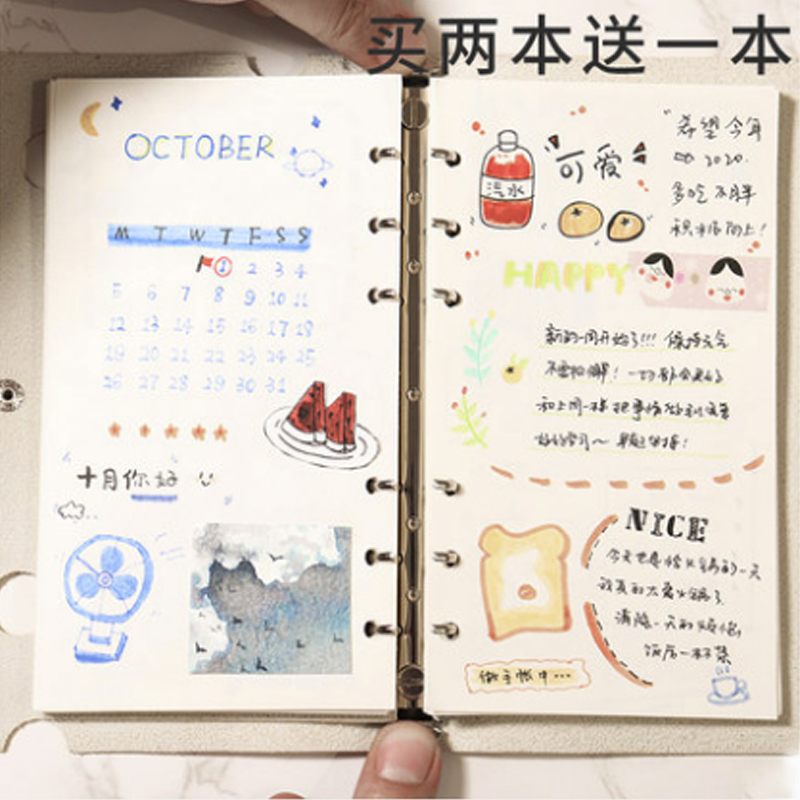 买两本送一本
OCTOBER
M T W T F S S
1 2 3 4
5 6 7 8 9 10 11
12 13 14 15 16 17 18
19 20 21 22 23 24 25
26 27 28 29 30 31
十月你好
汽水
可爱
"希望今年
2020.
多吃不胖
积极向上!
HAPPY
新的一周开始了!!! 保持元气
不要怕哦! 一切都会
和上周一样 把事情做到
好好学习~
NICE
今天也是 的一天
我真的太爱火锅了
消除一天的烦恼
饭后一杯茶
做手帐中...